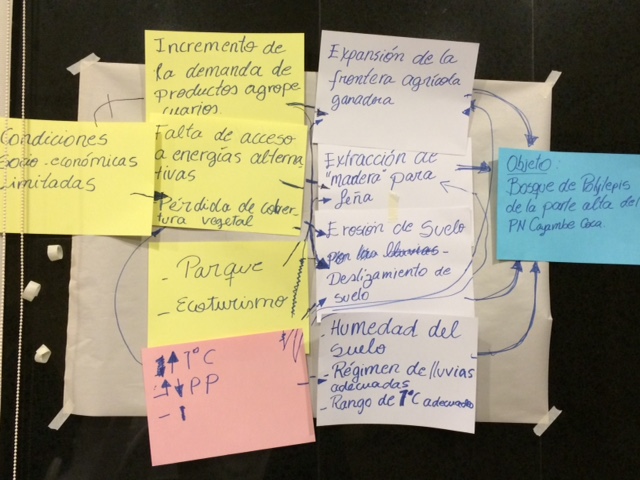 Incremento de
la demanda de
productos agrope
cuarios.
Condiciones
Socio-económicas
limitadas
Falta de acceso
a energías alterna
tivas
Pérdida de cober-
tura vegetal
- Parque
- Ecoturismo
↑ T°C
↑↓ PP
Expansión de la
frontera agrícola
ganadera
Extracción de
"madera" para
leña
Erosión de Suelo
por las lluvias -
Deslizamiento de
suelo
- Humedad del
suelo
- Régimen de lluvias
adecuadas
- Rango de T°C adecuado
Objeto:
Bosque de Polylepis
de la parte alta del
PN Cayambe Coca